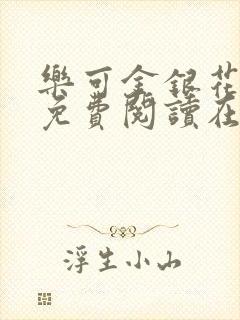 樂可金銀花
免費閱讀在
浮生小山